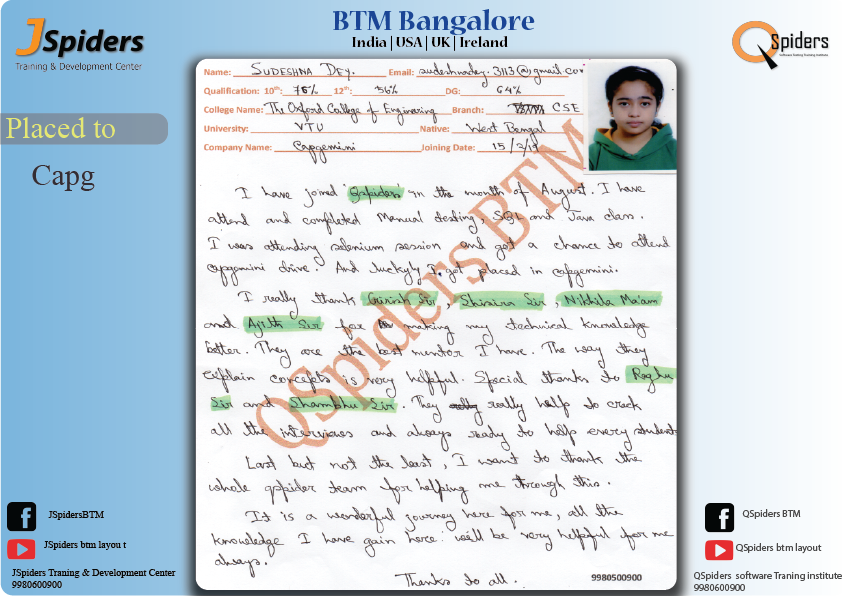 BTM Bangalore
India | USA | UK | Ireland
JSpiders
Training & Development Center
QSpiders
Software Testing Training Institute
Placed to
Capg
Name: SUDESHNA DEY. Email: sudeshnadey.3113@gmail.com
Qualification: 10th: 76% 12th: 56% DG: 64%
College Name: The Oxford College of Engineering Branch: CSE
University: VTU Native: West Bengal
Company Name: Capgemini Joining Date: 15/2/19
I have joined Qspiders in the month of August. I have
attend and completed Manual testing, SQL and Java class.
I was attending selenium session and got a chance to attend
capgemini drive. And luckyly I got placed in capgemini.
I really thank Girish Sir, Shisira Sir, Nikhila Ma'am
and Ajith Sir for making my technical knowledge
better. They are the best mentor I have. The way they
explain concepts is very helpful. Special thanks to Raghu
Sir and Shambhu Sir. They really help to crack
all the interviews and always ready to help every students
Last but not the least, I want to thank the
whole qspider team for helping me through this.
It is a wonderful journey here for me, all the
knowledge I have gain here will be very helpful for me
always.
Thanks to all.
QSpiders BTM
9980500900
JSpidersBTM
JSpiders btm layou t
JSpiders Traning & Development Center
9980600900
QSpiders BTM
QSpiders btm layout
QSpiders software Traning institute
9980600900